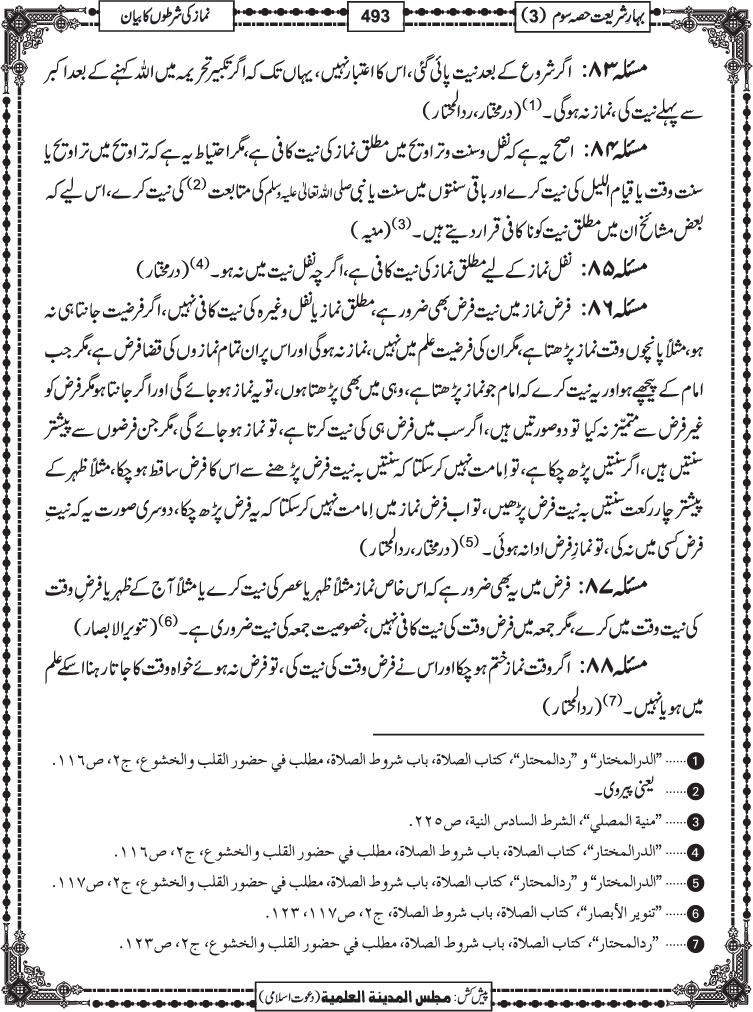 بہارِ شریعت حصہ سوم (3)
493
نماز کی شرطوں کا بیان
مسئلہ ۸۳: اگر شروع کے بعد نیت پائی گئی، اس کا اعتبار نہیں، یہاں تک کہ اگر تکبیر تحریمہ میں اللہ کہنے کے بعد اکبر
سے پہلے نیت کی، نماز نہ ہوگی۔ (1) (درمختار، ردالمحتار)
مسئلہ ۸۴: اصح یہ ہے کہ نفل و سنت و تراویح میں مطلق نماز کی نیت کافی ہے، مگر احتیاط یہ ہے کہ تراویح میں تراویح یا
سنت وقت یا قیام اللیل کی نیت کرے اور باقی سنتوں میں سنت یا نبی صلی اللہ تعالیٰ علیہ وسلم کی متابعت (2) کی نیت کرے، اس لیے کہ
بعض مشائخ ان میں مطلق نیت کو ناکافی قرار دیتے ہیں۔ (3) (منیہ)
مسئلہ ۸۵: نفل نماز کے لیے مطلق نماز کی نیت کافی ہے، اگرچہ نفل نیت میں نہ ہو۔ (4) (درمختار)
مسئلہ ۸۶: فرض نماز میں نیت فرض بھی ضرور ہے، مطلق نماز یا نفل وغیرہ کی نیت کافی نہیں، اگر فرضیت جانتا ہی نہ
ہو، مثلاً پانچوں وقت نماز پڑھتا ہے، مگر ان کی فرضیت علم میں نہیں، نماز نہ ہوگی اور اس پر ان تمام نمازوں کی قضا فرض ہے، مگر جب
امام کے پیچھے ہو اور یہ نیت کرے کہ امام جو نماز پڑھتا ہے، وہی میں بھی پڑھتا ہوں، تو یہ نماز ہو جائے گی اور اگر جانتا ہو مگر فرض کو
غیر فرض سے متمیز نہ کیا تو دو صورتیں ہیں، اگر سب میں فرض ہی کی نیت کرتا ہے، تو نماز ہو جائے گی، مگر جن فرضوں سے پیشتر
سنتیں ہیں، اگر سنتیں پڑھ چکا ہے، تو اِمامت نہیں کرسکتا کہ سنتیں بہ نیت فرض پڑھنے سے اس کا فرض ساقط ہو چکا، مثلاً ظہر کے
پیشتر چار رکعت سنتیں بہ نیت فرض پڑھیں، تو اب فرض نماز میں اِمامت نہیں کرسکتا کہ یہ فرض پڑھ چکا، دوسری صورت یہ کہ نیتِ
فرض کسی میں نہ کی، تو نمازِ فرض ادا نہ ہوئی۔ (5) (درمختار، ردالمحتار)
مسئلہ ۸۷: فرض میں یہ بھی ضرور ہے کہ اس خاص نماز مثلاً ظہر یا عصر کی نیت کرے یا مثلاً آج کے ظہر یا فرضِ وقت
کی نیت وقت میں کرے، مگر جمعہ میں فرض وقت کی نیت کافی نہیں، خصوصیت جمعہ کی نیت ضروری ہے۔ (6) (تنویر الابصار)
مسئلہ ۸۸: اگر وقت نماز ختم ہو چکا اور اس نے فرض وقت کی نیت کی، تو فرض نہ ہوئے خواہ وقت کا جاتا رہنا اسکے علم
میں ہو یا نہیں۔ (7) (ردالمحتار)
1 ...... "الدرالمختار" و "ردالمحتار"، کتاب الصلاة، باب شروط الصلاة، مطلب في حضور القلب والخشوع، ج۲، ص۱۱۶.
2 ...... یعنی پیروی۔
3 ...... "منية المصلي"، الشرط السادس النية، ص۲۲۵.
4 ...... "الدرالمختار"، کتاب الصلاة، باب شروط الصلاة، مطلب في حضور القلب والخشوع، ج۲، ص۱۱۶.
5 ...... "الدرالمختار" و "ردالمحتار"، کتاب الصلاة، باب شروط الصلاة، مطلب في حضور القلب والخشوع، ج۲، ص۱۱۷.
6 ...... "تنویر الأبصار"، کتاب الصلاة، باب شروط الصلاة، ج۲، ص۱۱۷، ۱۲۳.
7 ...... "ردالمحتار"، کتاب الصلاة، باب شروط الصلاة، مطلب في حضور القلب والخشوع، ج۲، ص۱۲۳.
پیش کش: مجلس المدينة العلمية (دعوتِ اسلامی)